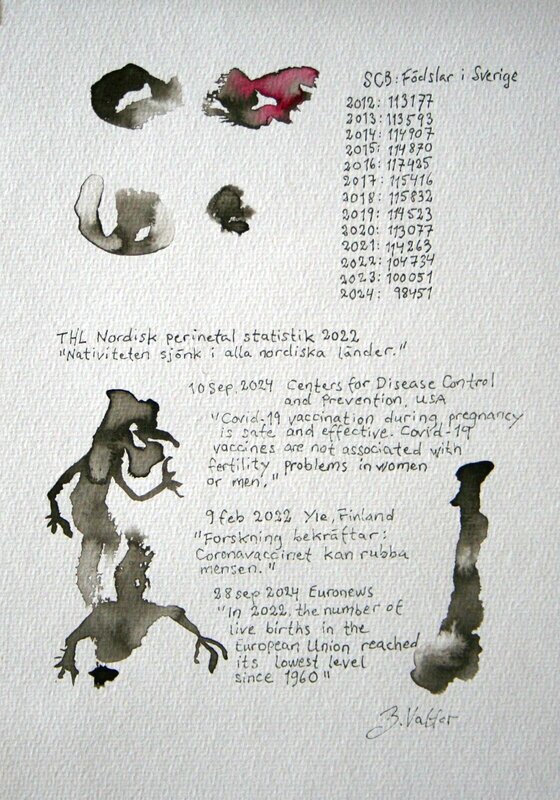 SCB: Födslar i Sverige
2012: 113177
2013: 113593
2014: 114907
2015: 114870
2016: 117425
2017: 115416
2018: 115832
2019: 114523
2020: 113077
2021: 114263
2022: 104734
2023: 100051
2024: 98451
THL Nordisk perinetal statistik 2022
"Nativiteten sjönk i alla nordiska länder."
10 sep. 2024 Centers for Disease Control
and Prevention, USA
"Covid-19 vaccination during pregnancy
is safe and effective. Covid-19
vaccines are not associated with
fertility problems in women
or men."
9 feb 2022 Yle, Finland
"Forskning bekräftar:
Coronavaccinet kan rubba
mensen."
28 sep 2024 Euronews
"In 2022, the number of
live births in the
European Union reached
its lowest level
since 1960"
B.